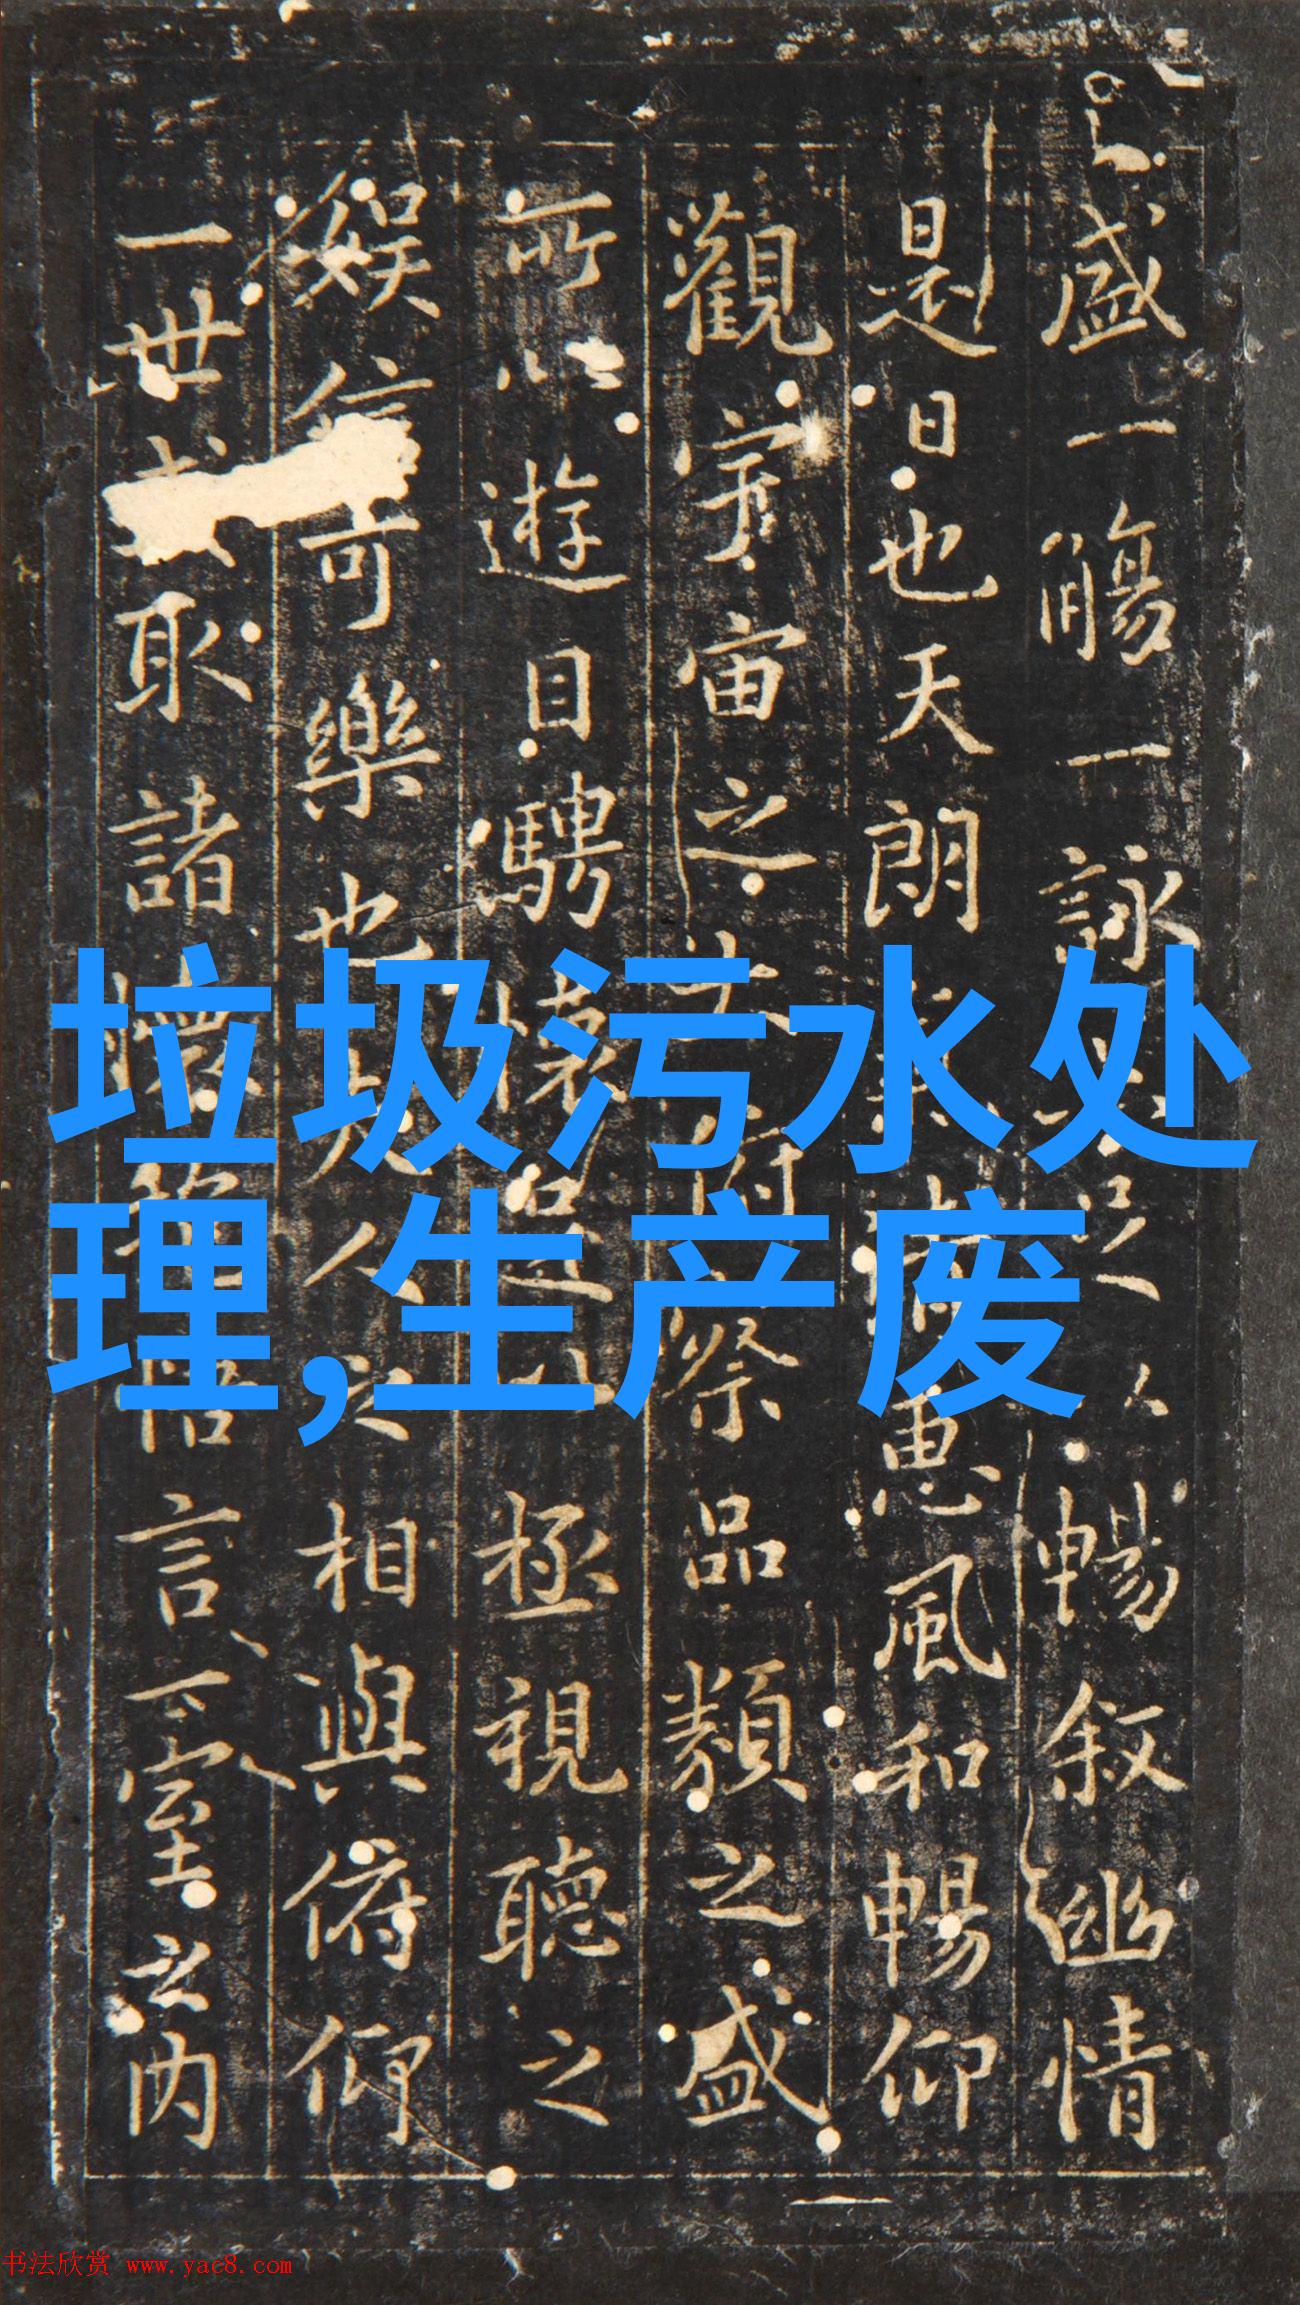 盛一觴一詠足以暢叙幽情
是日也天朗清惠風和暢仰
觀宇宙之大俯察品類之盛
所以遊目騁懷足以極視聽之
娛信可樂也夫人之相與俯仰
一世取諸懷悟言一室之内
垃圾污水处
理,生产废
书法欣赏 www.yac8.com